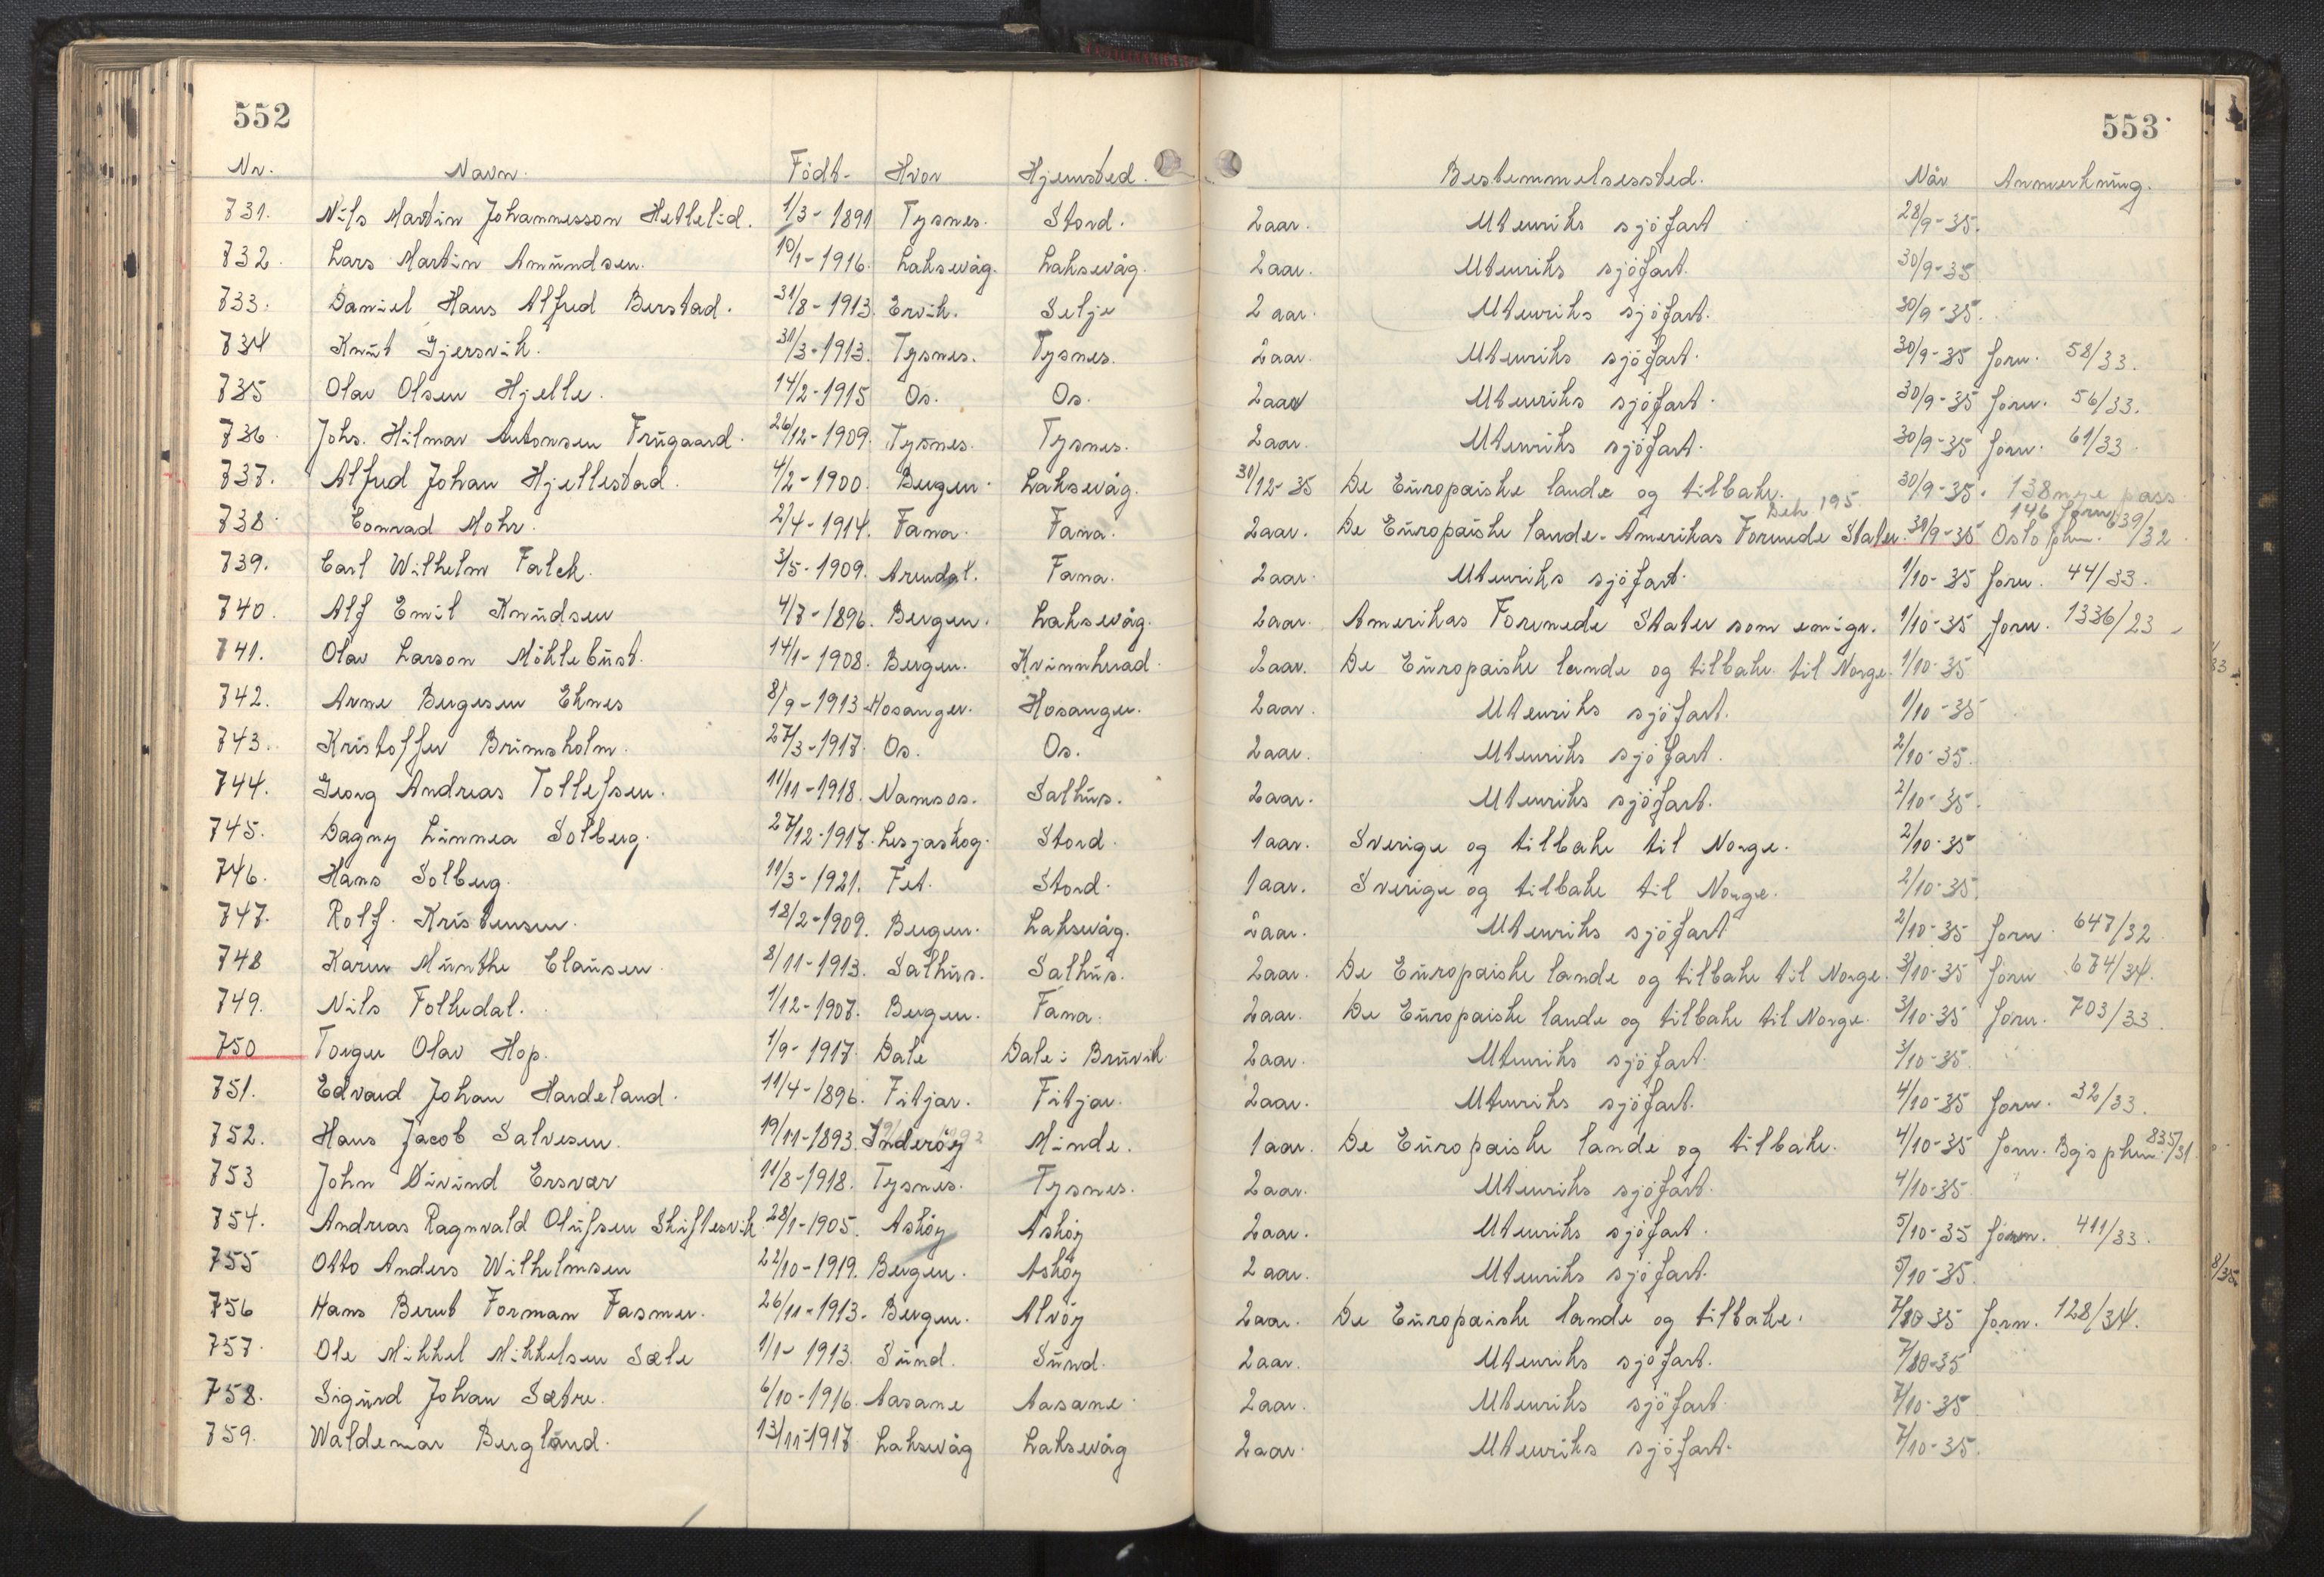 552
553
Nr. Navn. Födt- Hvor Hjemsted. Bestemmelsessted. Når Anmerkning.
731. Nils Martin Johannesson Hetlelid. 1/3-1891 Tysnes. Stord. 2 aar. Utenriks sjöfart 28/9-35.
732. Lars Martin Amundsen. 10/1-1916. Laksevåg. Laksevåg. 2 aar. Utenriks sjöfart. 30/9-35
733. Daniel Hans Alfred Berstad. 31/8-1913. Ervik. Selje 2 aar. Utenriks sjöfart. 30/9-35.
734 Knut Gjersvik. 31/3-1913. Tysnes. Tysnes. 2 aar. Utenriks sjöfart. 30/9-35 forn. 58/33.
735 Olav Olsen Hjelle. 14/2-1915 Os. Os. 2 aar Utenriks sjöfart. 30/9-35 forn. 56/33.
736. Johs. Hilmar Antonsen Frugaard. 26/12-1909. Tysnes. Tysnes. 2 aar. Utenriks sjöfart. 30/9-35 forn. 61/33.
737. Alfred Johan Hjellestad. 4/2-1900. Bergen. Laksevåg. 30/12-35 De Europæiske lande og tilbake. 30/9-35. 138 nye pass
738. Conrad Mohr. 2/4-1914. Fana. Fana. 2 aar. De Europæiske lande-Amerikas Forenede Stater. 30/9-35 Oslo 639/32.
739. Carl Wilhelm Falck. 3/5-1909. Arendal. Fana. 2 aar. Utenriks sjöfart. 1/10-35 forn. 44/33.
740. Alf Emil Knudsen 4/7-1896. Bergen. Laksevåg. 2 aar. Amerikas Forenede Stater som emigr. 1/10-35 forn. 1336/23
741. Olav Larson Möklebust. 14/1-1908. Bergen. Kvinnherad. 2 aar. De Europæiske lande og tilbake til Norge. 1/10-35
742. Arne Bergesen Eknes 8/9-1913 Hosanger. Hosanger. 2 aar. Utenriks sjöfart. 1/10-35
743. Kristoffer Brimsholm. 27/3-1917. Os. Os. 2 aar. Utenriks sjöfart. 2/10-35.
744. Georg Andreas Tollefsen. 11/11-1918. Namsos. Salhus. 2 aar. Utenriks sjöfart. 2/10-35.
745. Dagny Linnea Solberg. 27/12-1917. Lesjaskog. Stord. 1 aar. Sverige og tilbake til Norge. 2/10-35
746. Hans Solberg. 11/3-1921. Fet. Stord. 1 aar. Sverige og tilbake til Norge. 2/10-35.
747. Rolf. Kristensen. 18/2-1909. Bergen. Laksevåg. 2 aar. Utenriks sjöfart 2/10-35 forn. 647/32
748 Karen Munthe Clausen. 8/11-1913. Salhus. Salhus. 2 aar. De Europæiske lande og tilbake til Norge. 3/10-35 forn 674/34.
749. Nils Folkedal. 1/12-1907. Bergen. Fana. 2 aar. De Europæiske lande og tilbake til Norge. 3/10-35 forn. 703/33.
750 Torger Olav Hop. 1/9-1917. Dale Dale i Bruvik 2 aar. Utenriks sjöfart. 3/10-35.
751. Edvard Johan Hardeland. 11/4-1896. Fitjar. Fitjar. 2 aar. Utenriks sjöfart. 4/10-35 forn. 32/33.
752. Hans Jacob Salvesen. 19/11-1893. Inderöy Minde. 1 aar. De Europæiske lande og tilbake. 4/10-35 forn. Bgs pkm. 835/31
753 John Eivind Ersvær 11/8-1918. Tysnes. Tysnes. 2 aar. Utenriks sjöfart. 4/10-35
754. Andreas Ragnvald Olufsen Skiftesvik 28/1-1905. Asköy Asköy 2 aar. Utenriks sjöfart. 5/10-35 forn. 411/33.
755 Otto Anders Wilhelmsen 22/10-1919. Bergen. Asköy 2 aar. Utenriks sjöfart. 5/10-35.
756 Hans Berent Forman Fasmer. 26/11-1913. Bergen. Alvöy 2 aar. De Europæiske lande og tilbake. 7/10 35 forn. 128/34.
757. Ole Mikkel Mikkelsen Sæle 1/1-1913. Sund. Sund. 2 aar. Utenriks sjöfart. 7/10-35
758. Sigurd Johan Sætre. 6/10-1916. Aasane Aasane 2 aar. Utenriks sjöfart. 7/10-35
759. Waldemar Bergland. 13/11-1917 Laksevåg Laksevåg 2 aar. Utenriks sjöfart. 7/10-35.